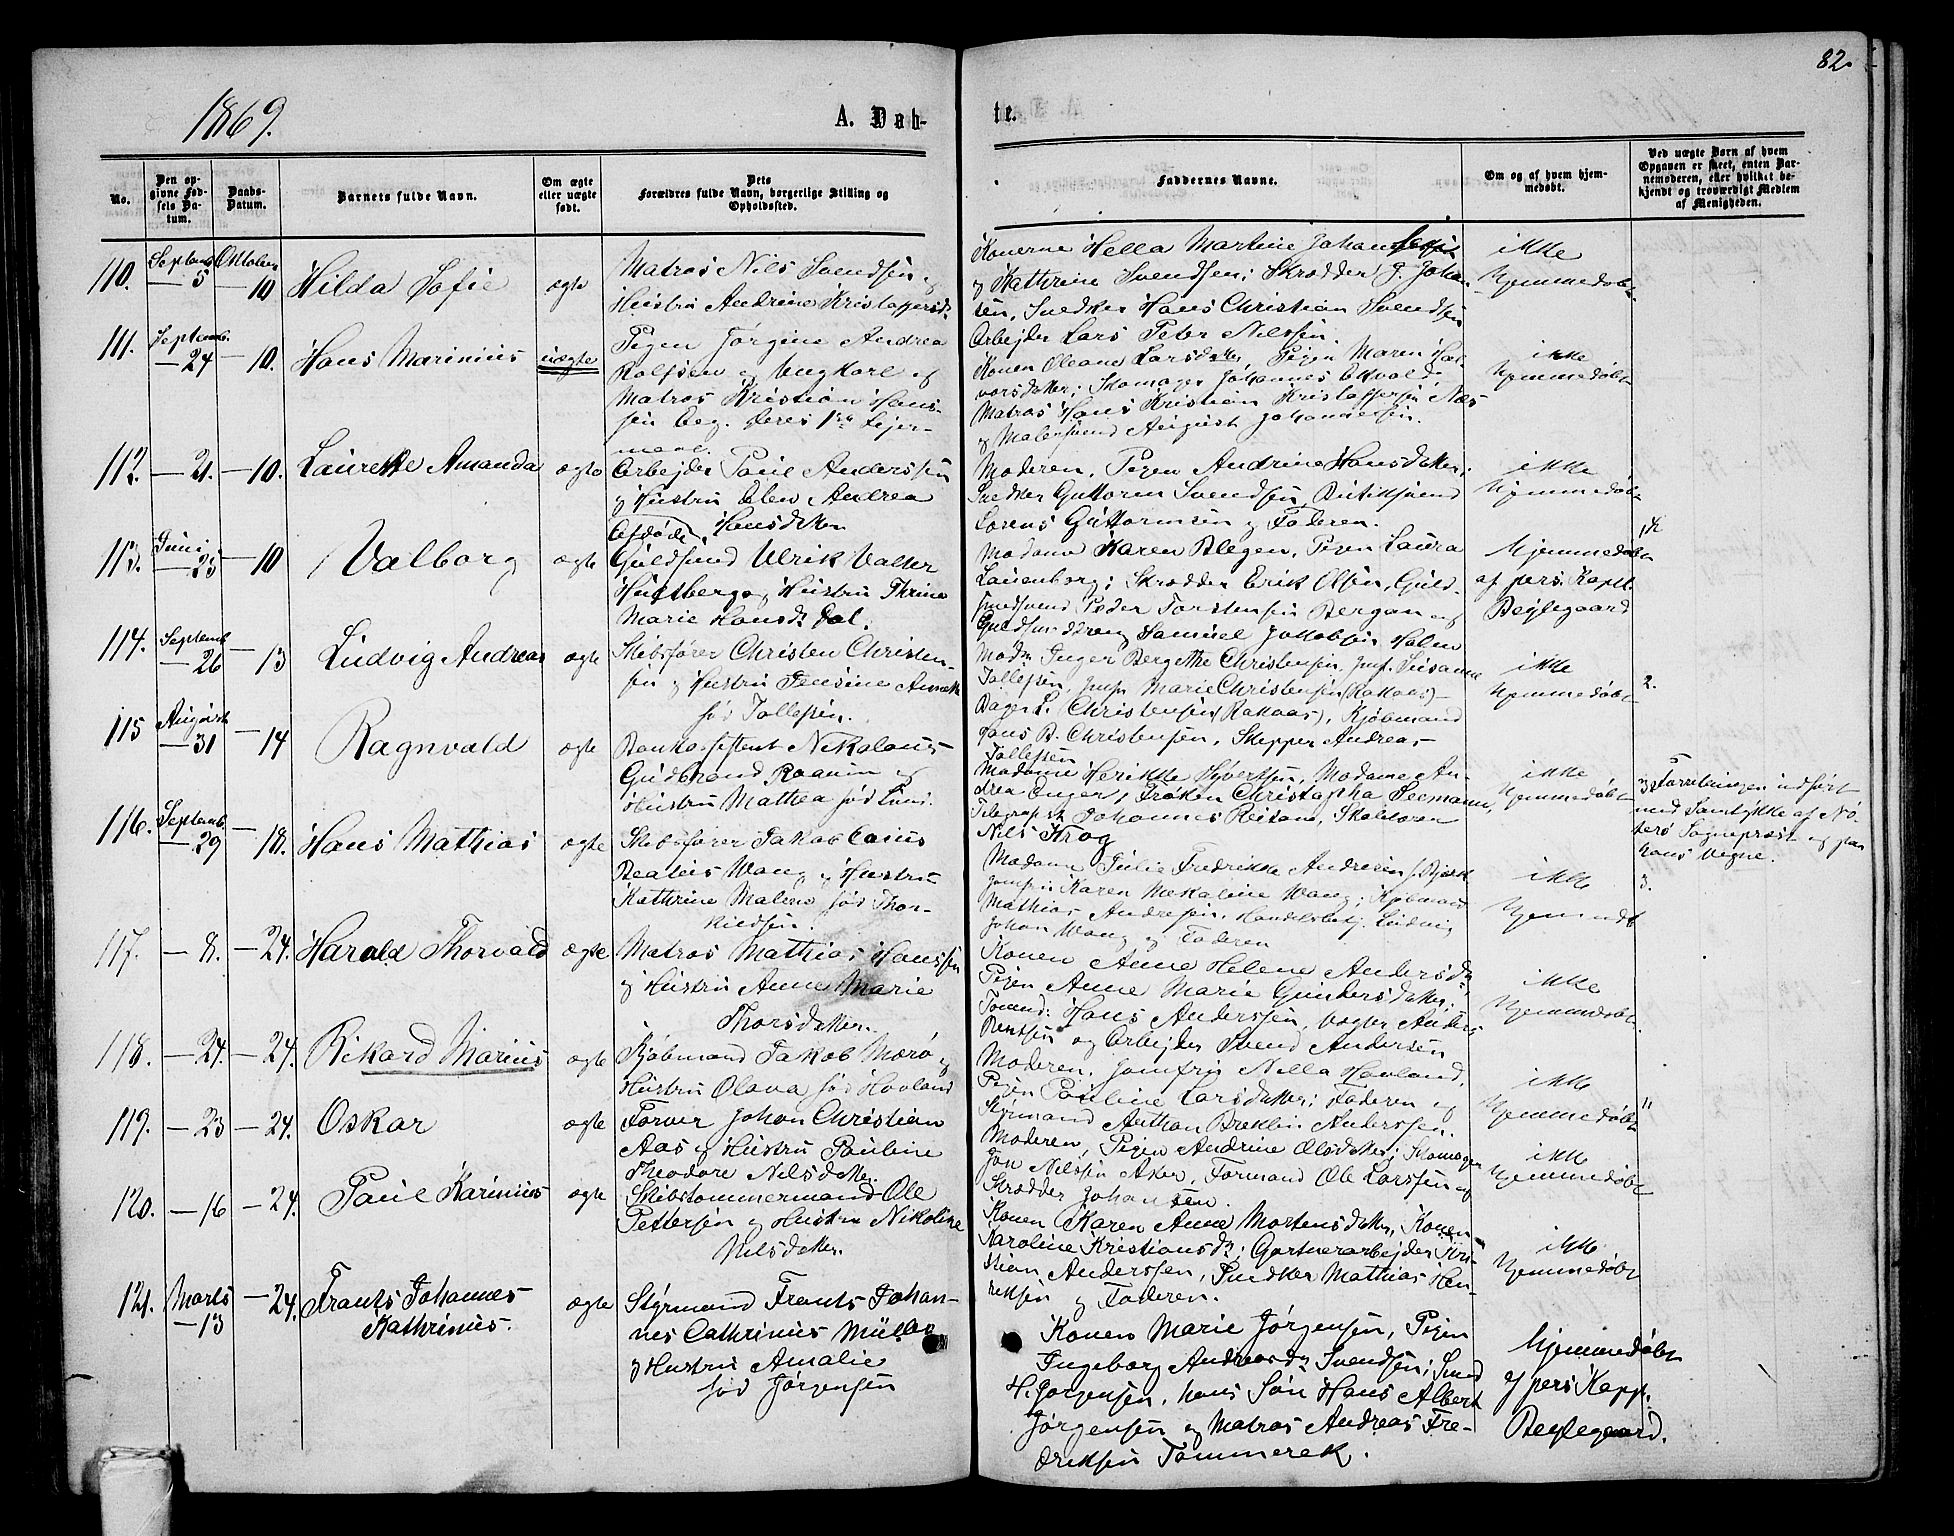 82.
1869.
A. Døb-
te.
No.
Den opgivne Fødsels Datum.
Daabs-Datum.
Barnets fulde Navn.
Om ægte eller uægte født.
Dets Forældres fulde Navn, borgerlige Stilling og Opholdssted.
Faddernes Navne.
Om og af hvem hjemmedøbt.
Ved uægte Børn af hvem Opgaven er skeet, enten Barnemoderen, eller hvilket bekjendt og troværdigt Medlem af Menigheden.
110.
Septemb
— 5
October
— 10
Hilda Sofie
ægte
Matros Nils Svendsen og
Hustru Andrine Kristoffersd.
Konerne Hella Martine Johannesen
og Kathrine Svendsen; Skrædder J. Johan-
sen, Snedker Hans Christian Svendsen
Arbejder Lars Peter Nilssen.
ikke
hjemmedøbt
111.
Septemb.
— 24
— 10.
Hans Marinius
uægte
Pigen Jørgine Andrea
Rolfsen og Ungkarl og
Matros Kristian Hans-
sen beg. deres 1ste Lejer-
maal.
Konen Oleane Larsdatter Pigen Maren Hal-
vorsdatter; Skomager Johannes Ekvald,
Matros Hans Kristian Kristoffersen Næs
og Malersvend August Johannesen.
ikke
hjemmedøbt
112.
— 21.
— 10.
Laurette Amanda
ægte
Arbejder Paul Anderssen
og Hustru Elen Andrea
Hansdatter
Moderen, Pigen Andrine Hansdatter;
Snedker Guttorm Svendsen, Butiksvend
Lorens Guttormsen og Faderen.
ikke
hjemmedøbt
113.
Juni
— 25
— 10
Valborg
ægte
Afdøde
Guldsmed Ulrik Valter
Hustru Thrine
Marie Hansdr Dal.
Madame Karen Blegen, Pigen Laura
Lauenborg; Skrædder Erik Olsen, Guld-
smedsvend Peder Torstensen Bergan og
Guldsmeddreng Samuel Jakobsen Holm
hjemmedøbt
af pers. Kapel.
Bejlegaard
114.
Septemb
— 26
— 13
Ludvig Andreas
ægte
Skibsfører Christen Christen-
sen og Hustru Jensine
fød Tollefsen.
Mad. Inger Bergithe Christensen, Jmf. Susanne
Tollefsen, Jmfr Marie Christensen (Rakaas)
Bager L. Christensen (Rakaas), Kjøbmand
Hans B. Christensen, Skipper Andreas
Tollefsen
ikke
hjemmedøbt
2.
115
August
— 31
— 14
Ragnvald
ægte
Bankassistent Nikolaus
Gudbrand Roanum og
Hustru Mathea fød Lund.
Madame Herikke Syvertsen, Madame An-
drea Unger, Frøken Christopha Seemann,
Telegrafist Johannes Reitan, Skoletoren
Nils Krog
ikke
hjemmedøbt
Forretningen udført
med Samtykke af Nø-
terø Sognepræst og paa
hans Vegne.
116.
Septemb.
— 29
— 18.
Hans Mathias
ægte
Skibsfører Jakob Caius
Beateus Wang og Hustru
Kathrine Malene fød Thor-
kildsen.
Madame Julie Fredrikke Andresen f. Bjørk
Jomfru Karen Mekaline Wang; Kjøbmand
Mathias Andresen, Handelsbetj. Ludvig
Johan Wang og Faderen
ikke
hjemmdt
3.
117.
— 8.
— 24.
Harald Thorvald
ægte
Matros Mathias Hanssen
og Hustru Anne Marie
Thorsdatter.
Konen Anne Helene Andersdr
Pigen Anne Marie Gundersdatter;
Tømmd. Hans Anderssen, Vagter Anders
Berntsen og Arbejder Svend Andersen
ikke
hjemmedøbt.
118.
— 24.
— 24.
Rikard Marius
ægte
Kjøbmand Jakob Mærø og
Hustru Olava fød Hovland
Moderen, Jomfru Nella Hovland,
Pigen Pauline Larsdatter; Faderen og
Styrmand Anthon Breklin Anderssen.
ikke
hjemmedøbt
119.
— 23
— 24.
Oskar
ægte
Farver Johan Christian
Aas og Hustru Pauline
Theodore Nilsdatter
Moderen, Pigen Andrine Olsdatter; Skomager
Jon Nilssen Aker, Formand Ole Larssen og
Skrædder Johansen.
ikke
hjemmedøbt
120.
— 16
— 24.
Paul Karinius
ægte
Skibstømmermand Ole
Pettersen og Hustru Nikoline
Nilsdatter.
Konen Karen Anne Mortensdatter, Konen
Karoline Kristiansdr; Gartnerarbejder Kri-
stian Anderssen, Snedker Mathias Hen-
riksen og Faderen.
ikke
hjemmedøbt
121.
Marts
— 13
— 24.
Frants Johannes
Kathrinus.
ægte
Styrmand Frants Johan-
nes Cathrinus Müller
og Hustru Amalie
fød Jørgensen
Konen Marie Jørgensen, Pigen
Ingeborg Andreasdr Svendsen; Smed
H. Jørgensen, hans Søn Hans Albert
Jørgensen og Matros Andreas Fre-
driksen Tømmerek.
hjemmedøbt
af pers Kapp.
Bejlegaard.